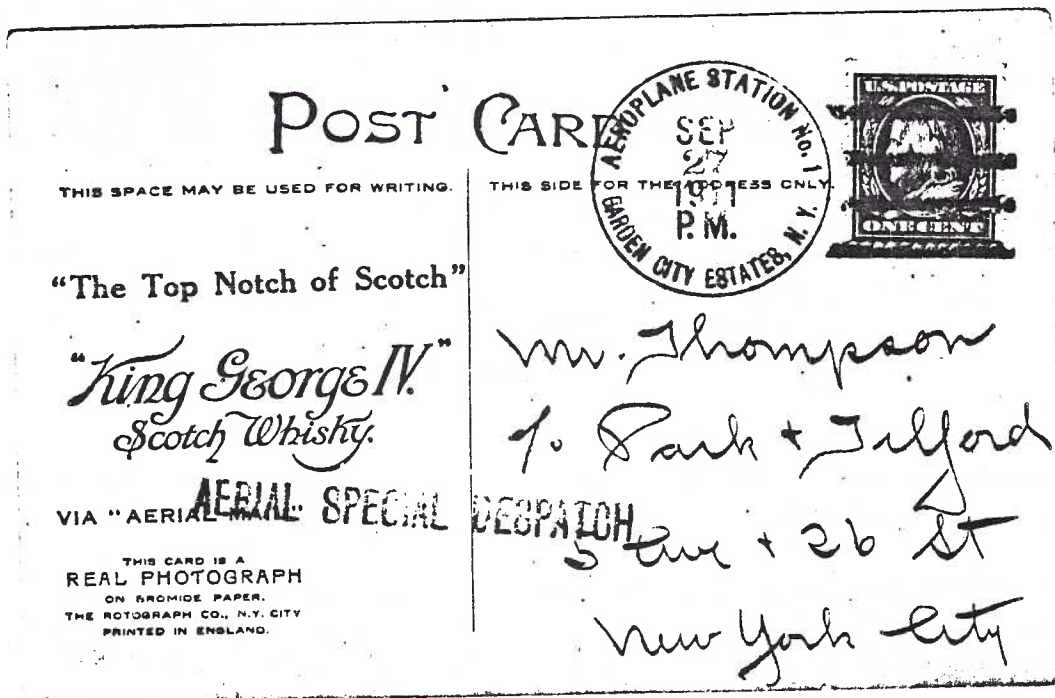 POST CARD
AEROPLANE STATION No. 1
SEP
27
1911
P.M.
GARDEN CITY ESTATES, N.Y.
U.S. POSTAGE
ONE CENT
THIS SPACE MAY BE USED FOR WRITING.
THIS SIDE FOR THE ADDRESS ONLY.
"The Top Notch of Scotch"
"King George IV."
Scotch Whisky.
VIA "AERIAL MAIL"
AERIAL SPECIAL DESPATCH
THIS CARD IS A
REAL PHOTOGRAPH
ON BROMIDE PAPER.
THE ROTOGRAPH CO., N.Y. CITY
PRINTED IN ENGLAND.
Mr. Thompson
℅ Park + Tilford
5 Ave + 26 St
New York City